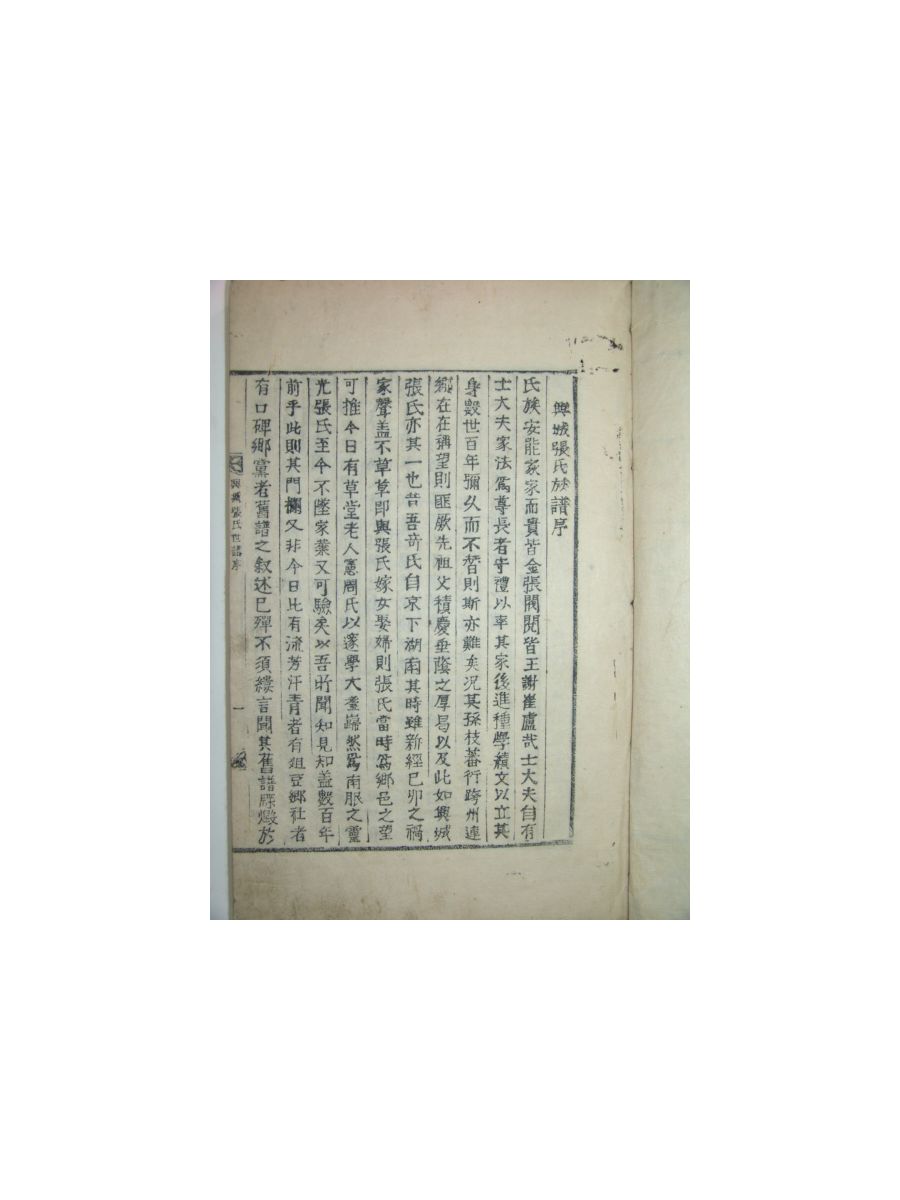 興城張氏族譜序
氏族安能家家而貴皆金張閥閱皆王謝崔盧哉士大夫自有
士大夫家法爲尊長者守禮以率其家後進種學績文以立其
身數世百年彌久而不替則斯亦難矣况其孫枝蕃衍跨州連
鄕在在稱望則匪厥先祖父積慶垂蔭之厚曷以及此如興城
張氏亦其一也昔吾奇氏自京下湖南其時雖新經己卯之禍
家聲盖不草草卽與張氏嫁女娶婦則張氏當時爲鄕邑之望
可推今日有草堂老人憲周氏以邃學大耋巋然爲南服之靈
光張氏至今不墜家業又可驗矣以吾所聞知見知盖數百年
前乎此則其門闌又非今日比有流芳汗青者有俎豆鄕社者
有口碑鄕黨者舊譜之叙述已殫不須縷言聞其舊譜燬於
興城張氏世譜序
一